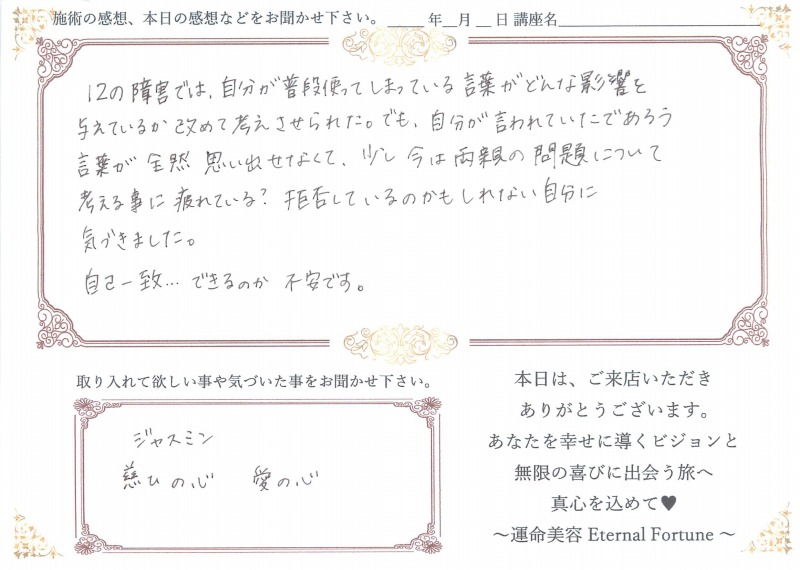 施術の感想、本日の感想などをお聞かせ下さい。 ____年__月__日 講座名____________________
12の障害では、自分が普段使ってしまっている言葉がどんな影響を
与えているか改めて考えさせられた。でも、自分が言われていたであろう
言葉が全然思い出せなくて、少し今は両親の問題について
考える事に疲れている?拒否しているのかもしれない自分に
気づきました。
自己一致…できるのか不安です。
取り入れて欲しい事や気づいた事をお聞かせ下さい。
ジャスミン
慈ひの心 愛の心
本日は、ご来店いただき
ありがとうございます。
あなたを幸せに導くビジョンと
無限の喜びに出会う旅へ
真心を込めて♥
〜運命美容 Eternal Fortune 〜